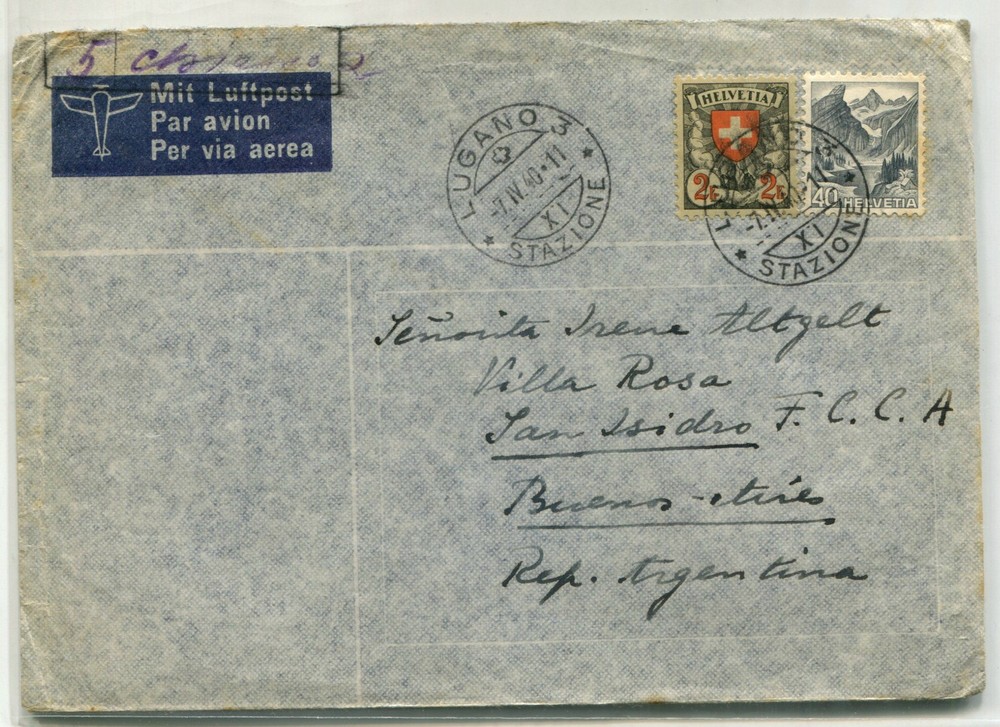 5
Mit Luftpost
Par avion
Per via aerea
LUGANO 3
-7.IV.40-11
XI
STAZIONE
HELVETIA
2F 2F
40 HELVETIA
-7.IV.40-11
XI
STAZIONE
Señorita Irene Altgelt
Villa Rosa
San Isidro F. C. C. A
Buenos-Aires
Rep. Argentina